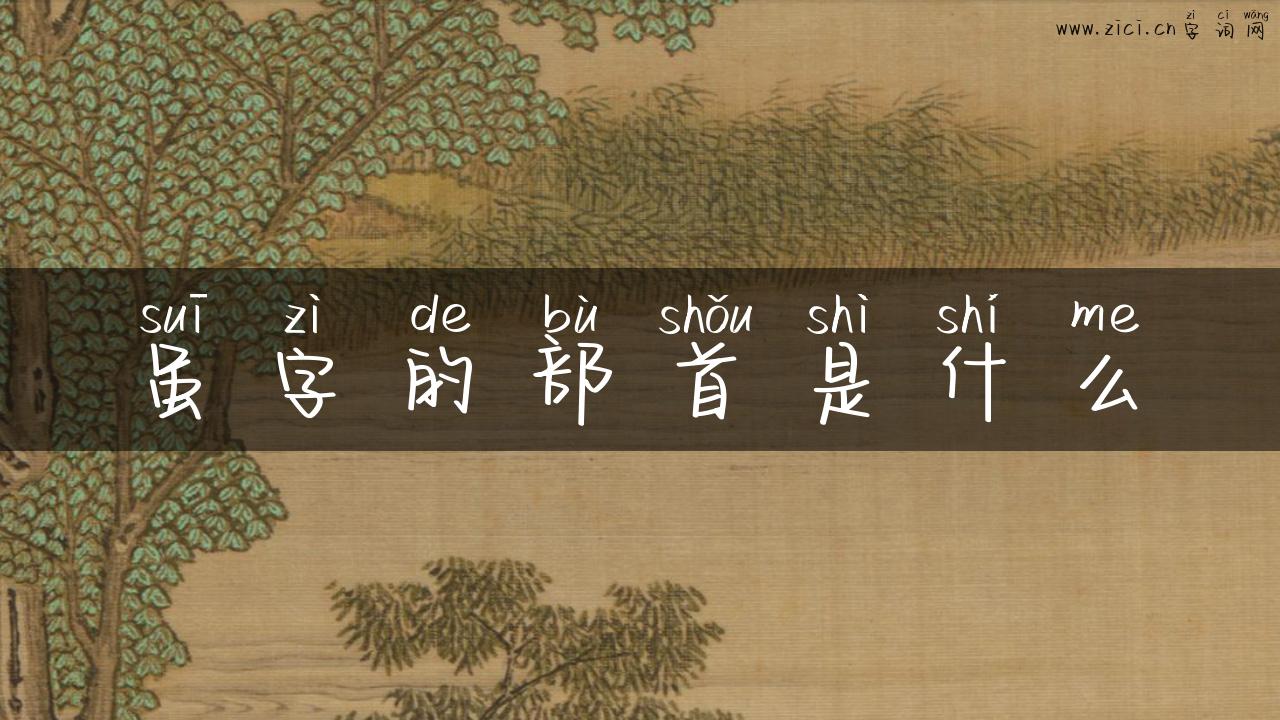 zì cí wǎng
www.zici.cn字词网
suī zì de bù shǒu shì shí me
虽字的部首是什么